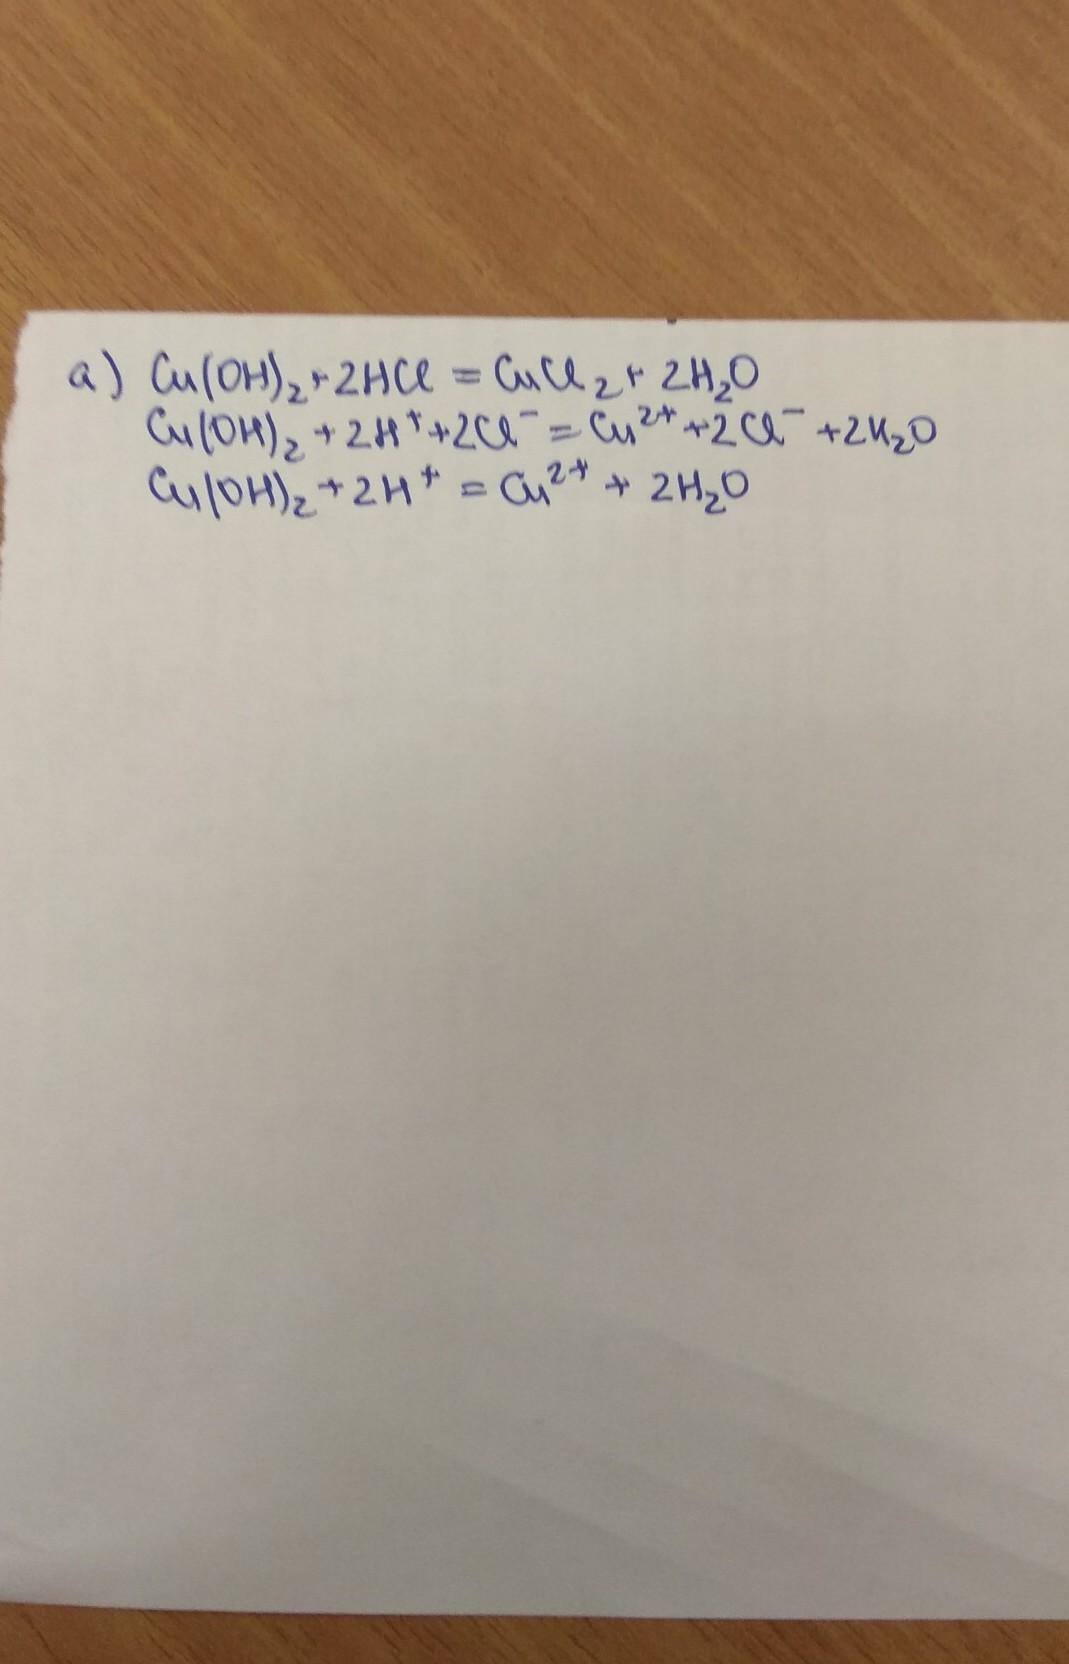 a) Cu(OH)₂+2HCl = CuCl₂+ 2H₂O
Cu(OH)₂ +2H⁺+2Cl⁻ = Cu²⁺+2Cl⁻ +2H₂O
Cu(OH)₂+2H⁺ = Cu²⁺ + 2H₂O